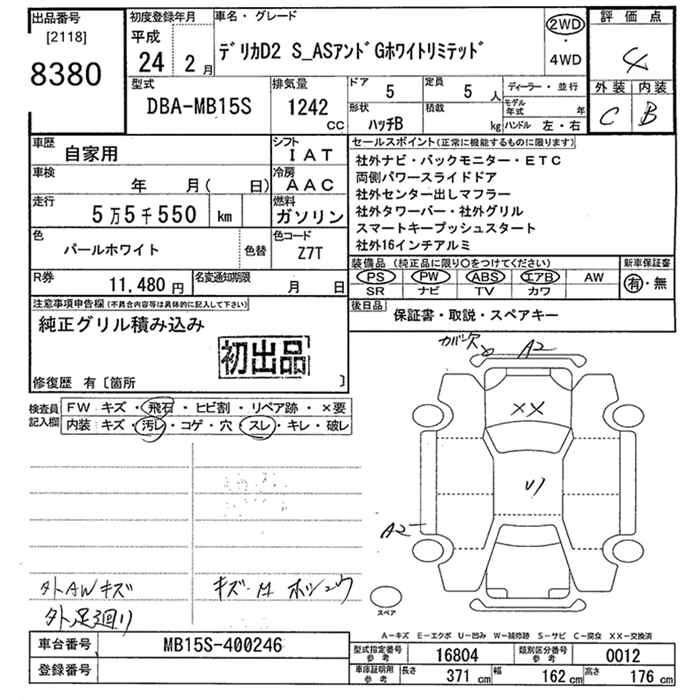 出品番号 初度登録年月 車名・グレード 評価点
[2118] 平成 2WD
8380 24 2月 デリカD2 S_ASアンドGホワイトリミテッド ・ 4WD 4
型式 排気量 ドア 定員 ディーラー・並行 外装 内装
DBA-MB15S 1242 CC 5 5人 モデル年式 年 C B
形状 積載
ハッチB kg ハンドル 左・右
車歴 自家用 シフト IAT セールスポイント(正常に機能するものに限ります)
社外ナビ・バックモニター・ETC
車検 年 月( 日) 冷房 AAC 両側パワースライドドア
社外センター出しマフラー
走行 5万5千550 km 燃料 ガソリン 社外タワーバー・社外グリル
スマートキープッシュスタート
色 パールホワイト 色替 色コード Z7T 社外16インチアルミ
装備品(純正品に限り○をつけてください) 新車保証書
R券 11,480円 名変通知期限 月 日 PS PW ABS エアB AW 有・無
SR ナビ TV カワ
注意事項申告欄(不具合内容等は具体的に記入して下さい) 後日品 保証書・取説・スペアキー
純正グリル積み込み
初出品
修復歴 有〔箇所 〕
カバー欠 A2
検査員記入欄 FW キズ・飛石・ヒビ割・リペア跡・×要
内装 キズ・汚レ・コゲ・穴・スレ・キレ・破レ
XX
U1
A2
外AWキズ
外足廻り
スペア
A-キズ E-エクボ U-凹み W-補修跡 S-サビ C-腐食 XX-交換済
車台番号 MB15S-400246 型式指定番号参考 16804 類別区分番号参考 0012
登録番号 車庫証明用参考 長さ 371cm 幅 162cm 高さ 176cm